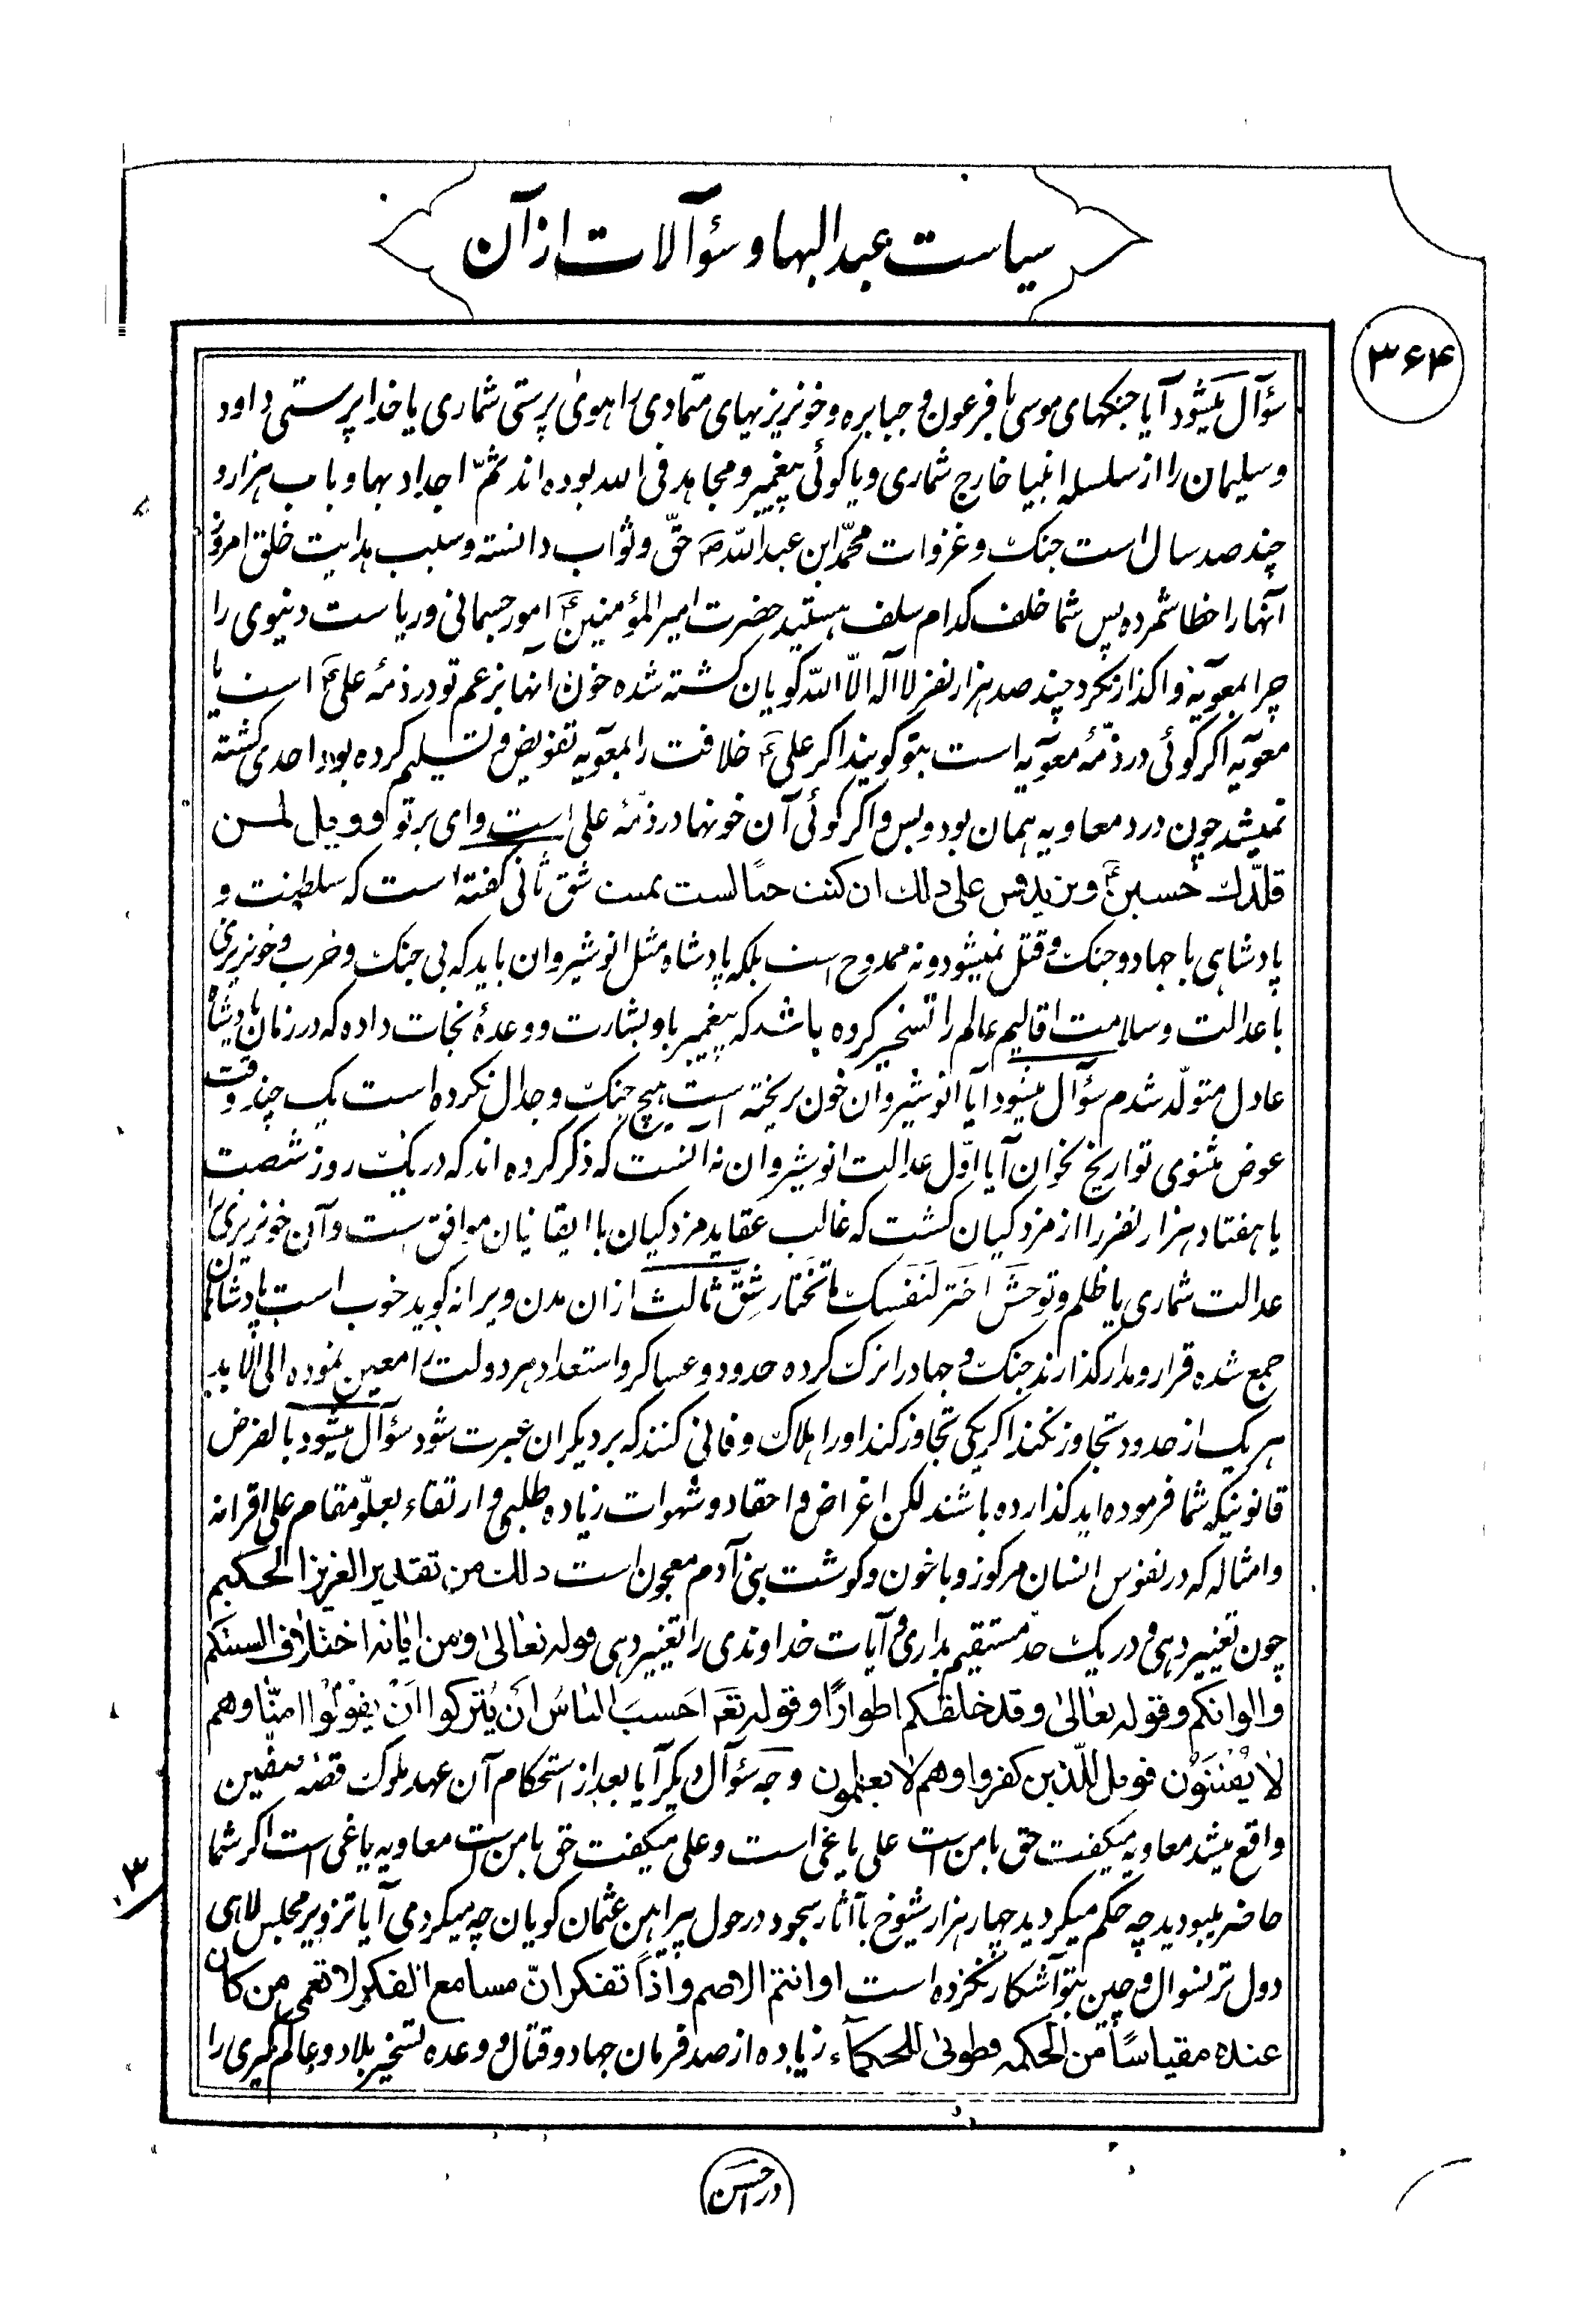 سیاست عبدالبها و سؤآلات از آن
۳۶۴
سؤآل میشود آیا جنکهای موسی با فرعون و جبابره و خونریزیهای متمادی را هویٰ پرستی شماری یا خدا پرستی داود
و سلیمان را از سلسله انبیا خارج شماری و یا کوئی پیغمبر و مجاهد فی الله بوده اند ثمّ اجداد بها و باب هزار و
چند صد سال است جنک و غزوات محمّد ابن عبدالله ص حقّ و ثواب دانسته و سبب هدایت خلق امروز
آنها را خطا شمرده پس شما خلف کدام سلف هستید حضرت امیرالمؤمنین ع امور جسمانی و ریاست دنیوی را
چرا بمعویه واکذار نکرد چند صد هزار نفر لا اله الّا الله کویان کشته شده خون آنها بزعم تو در ذمّه علی ع است یا
معویه اکر کوئی در ذمّه معویه است بتو کویند اکر علی ع خلافت را بمعویه تفویض و تسلیم کرده بود احدی کشته
نمیشد چون درد معاویه همان بود و بس و اکر کوئی آن خونها در ذمّه علی است وای بر تو و ویل لمن
قلّدک حسین ع و یزید قس علی ذلک ان کنت حیا لست بمیت شق ثانی کفته است که سلطنت و
پادشاهی با جهاد و جنک و قتل نمیشود و نه ممدوح است بلکه پادشاه مثل انوشیروان باید که بی جنک و ضرب و خونریزی
با عدالت و سلامت اقالیم عالم را تسخیر کرده باشد که پیغمبر باو بشارت و وعدهٔ نجات داده که در زمان پادشاه
عادل متولّد شدم سؤآل میشود آیا انوشیروان خون ریخته است هیچ جنک و جدال نکرده است یک چند وقت
عوض مثنوی تواریخ بخوان آیا اوّل عدالت انوشیروان نه آنست که ذکر کرده اند که در یک روز شصت
یا هفتاد هزار نفر را از مزدکیان کشت که غالب عقاید مزدکیان با ایقانیان موافق است و آن خونریزی را
عدالت شماری یا ظلم و توحش اختر لنفسک ما تختار شقّ ثالث از آن مدن ویرانه کوید خوب است پادشاهان
جمع شده قرار و مدار کذارند جنک و جهاد را ترک کرده حدود و عساکر و استعداد هر دولت را معین نموده الی الابد
هر یک از حدود تجاوز نکند اکر یکی تجاوز کند او را هلاک و فانی کنند که بر دیکران عبرت شود سؤآل میشود بالفرض
قانونیکه شما فرموده اید کذارده باشند لکن اغراض و احقاد و شهوات زیاده طلبی و ارتقاء بعلوّ مقام علی اقرانه
و امثاله که در نفوس انسان مرکوز و با خون و کوشت بنی آدم معجون است ذلک من تقدیر العزیز الحکیم
چون تغییر دهی و در یک حدّ مستقیم بداری و آیات خداوندی را تغییر دهی قوله تعالیٰ و من ایاته اختلاف السنتکم
و الوانکم و قوله تعالیٰ و قد خلقکم اطوارًا و قوله تع احسب الناس ان یترکوا ان یقولوا امنّا و هم
لا یفتنون فویل للّذین کفروا و هم لا یعلمون وجه سؤآل دیکر آیا بعد از استحکام آن عهد ملوک قصّه صفّین
واقع میشد معاویه میکفت حق با من است علی یاغی است و علی میکفت حق با من است معاویه یاغی است اکر شما
حاضر میبودید چه حکم میکردید چهار هزار شیوخ با آثار سجود در حول پیراهن عثمان کویان چه میکردی آیا تزویر مجلس لاهی
دول ترنسوال و چین بتو آشکار نکرده است او انتم الاصم و اذًا تفکر انّ مسامع الفکر لا تعمی من کان
عنده مقیاسًا من الحکمه فطوبیٰ للحکمآء زیاده از صد فرمان جهاد و قتال و وعده تسخیر بلاد و عالم کیری را
۳
در احسن